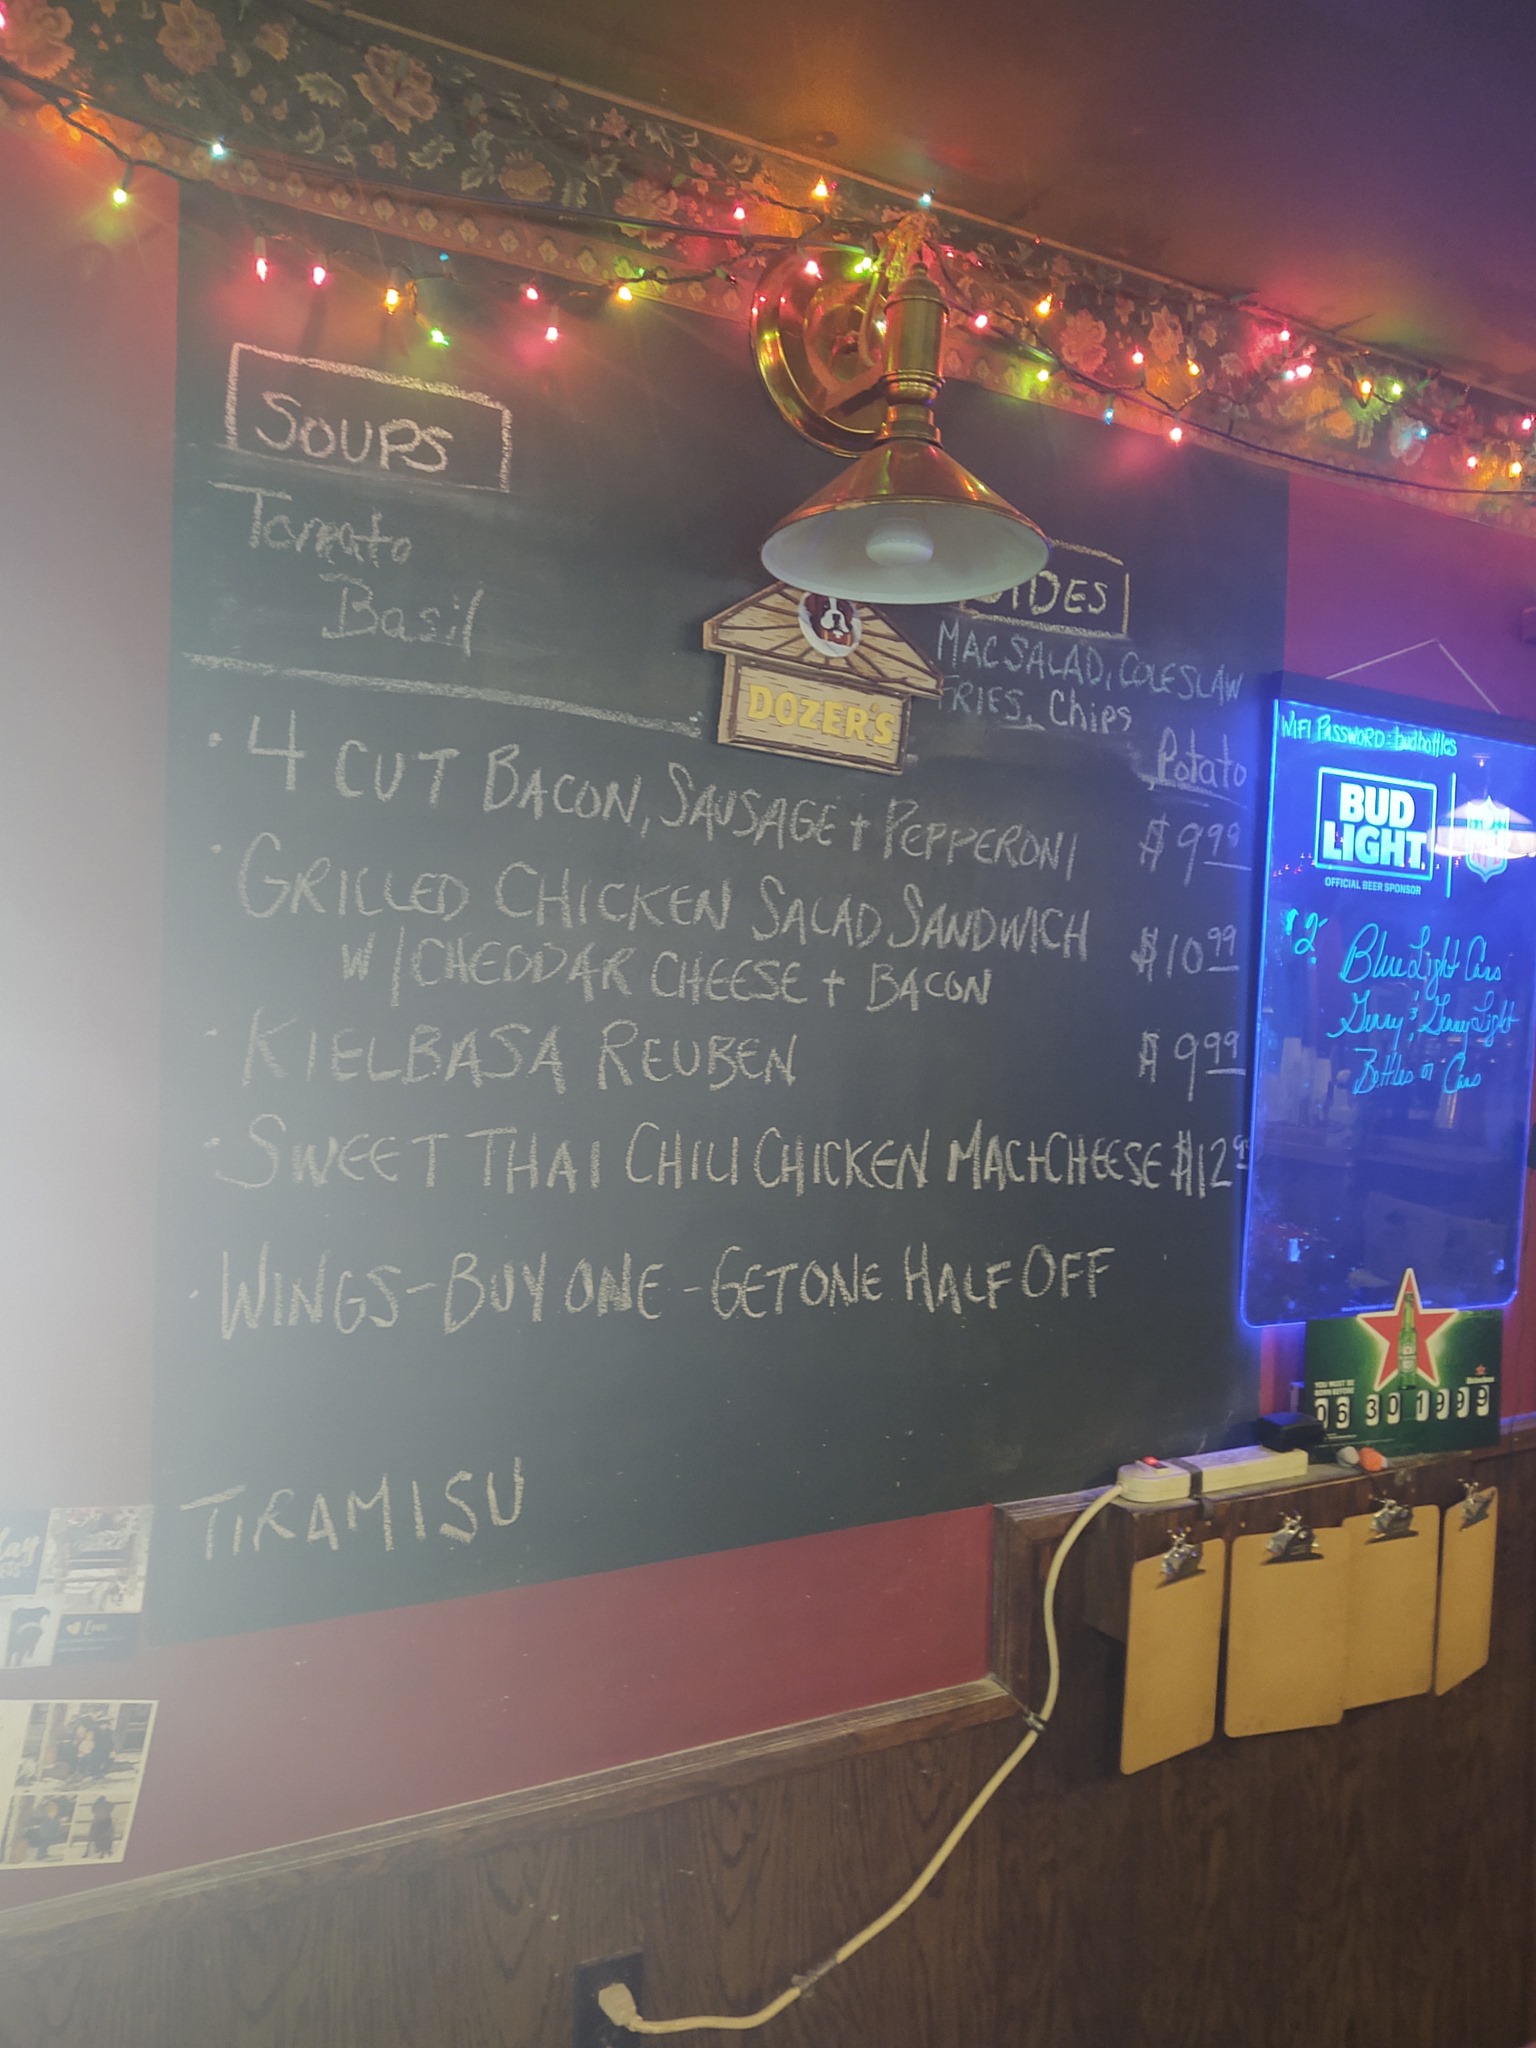 SOUPS
Tomato
Basil
SIDES
MAC SALAD, COLESLAW
FRIES, Chips
Potato
DOZER'S
· 4 CUT BACON, SAUSAGE + PEPPERONI $9.99
· GRILLED CHICKEN SALAD SANDWICH $10.99
W/ CHEDDAR CHEESE + BACON
· KIELBASA REUBEN $9.99
· SWEET THAI CHILI CHICKEN MAC+CHEESE $12.9
· WINGS - BUY ONE - GET ONE HALF OFF
TIRAMISU
WIFI PASSWORD: budbottles
BUD
LIGHT
OFFICIAL BEER SPONSOR
NFL
$2
Blue Light Cans
Genny & Genny Light
Bottles or Cans
YOU MUST BE
BORN BEFORE
Heineken
06 30 1999
Live